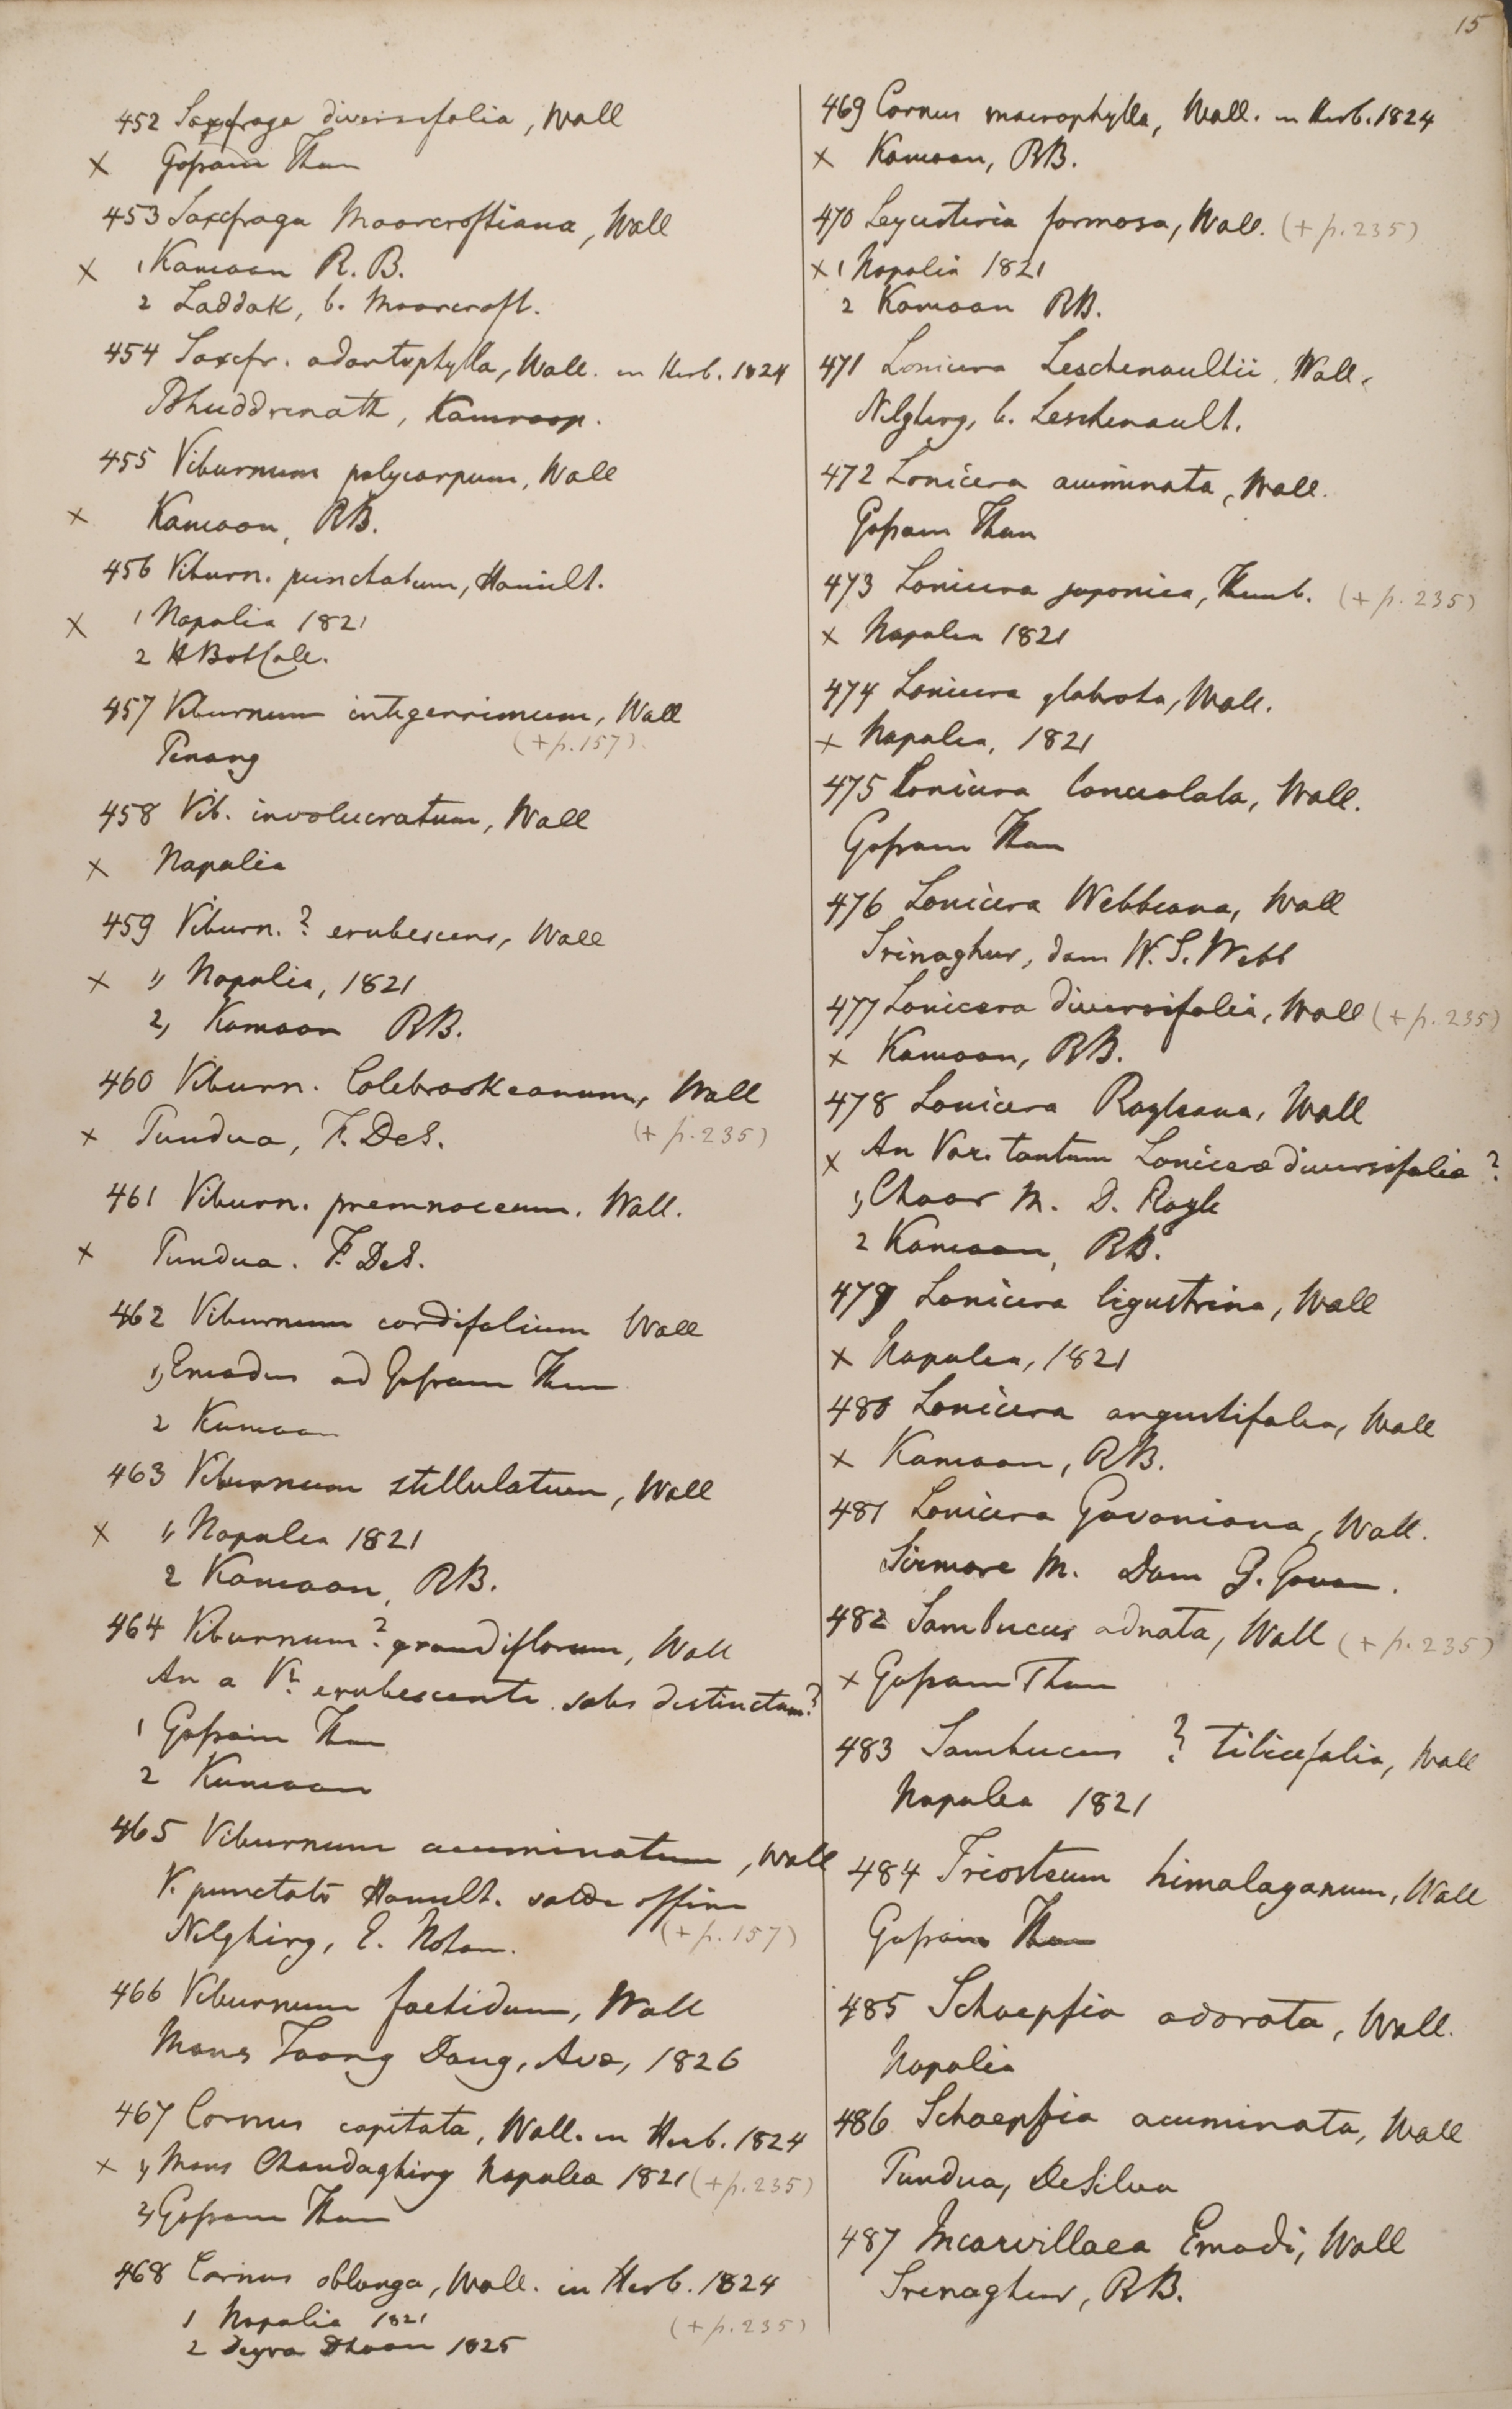 15
452 Saxifraga diversifolia, Wall
x Gofsain Than
453 Saxifraga Moorcroftiana, Wall
x 1 Kamaon R. B.
2 Laddak, b. Moorcroft.
454 Saxifr. odontophylla, Wall. in Herb. 1824
Bhuddrinath, Kamroop.
455 Viburnum polycarpum, Wall
x Kamaon, RB.
456 Viburn. punctatum, Hamilt.
x 1 Napalia 1821
2 HBotCalc.
457 Viburnum integerrimum, Wall
(+ p. 157).
Penang
458 Vib. involucratum, Wall
x Napalia
459 Viburn. ? erubescens, Wall
x 1, Napalia, 1821
2, Kamaon RB.
460 Viburn. Colebrookeanum, Wall
x Pundua, F. DeS. (+ p. 235)
461 Viburn. premnaceum. Wall.
x Pundua. F. DeS.
462 Viburnum cordifolium Wall
1, Emodus ad Gofsain Than
2 Kumaon
463 Viburnum stellulatum, Wall
x 1, Napalea 1821
2 Kamaon, RB.
464 Viburnum? grandiflorum, Wall
An a V? erubescente satis distinctum?
1 Gofsain Than
2 Kumaon
465 Viburnum acuminatum, Wall
V. punctato Hamilt. valde affine
Nilghiry, E. Noton. (+ p. 157)
466 Viburnum foetidum, Wall
Mons Toong Dong, Ava, 1826
467 Cornus capitata, Wall. in Herb. 1824
x 1, Mons Chandaghiry Napalea 1821 (+ p. 235)
2, Gofsain Than
468 Cornus oblonga, Wall. in Herb. 1824
1 Napalia 1821 (+ p. 235)
2 Deyra Dhoon 1825
469 Cornus macrophylla, Wall. in Herb. 1824
x Kamaon, RB.
470 Leycesteria formosa, Wall. (+ p. 235)
x 1 Napalia 1821
2 Kamaon RB.
471 Lonicera Leschenaultii, Wall.
Nilghiry, b. Leschenault.
472 Lonicera acuminata, Wall.
Gofsain Than
473 Lonicera japonica, Thunb. (+ p. 235)
x Napalea 1821
474 Lonicera glabrata, Wall.
x Napalea, 1821
475 Lonicera lanceolata, Wall.
Gofsain Than
476 Lonicera Webbiana, Wall
Srinaghur, dom W. S. Webb
477 Lonicera diversifolia, Wall (+ p. 235)
x Kamaon, RB.
478 Lonicera Royleana, Wall
x An Var. tantum Lonicerae diversifolia?
1, Choor M. D. Royle
2 Kamaon, RB.
479 Lonicera ligustrina, Wall
x Napalea, 1821
480 Lonicera angustifolia, Wall
x Kamaon, RB.
481 Lonicera Govaniana, Wall.
Sirmore M. Dom G. Govan.
482 Sambucus adnata, Wall (+ p. 235)
x Gofsain Than
483 Sambucus ? tiliaefolia, Wall
Napalea 1821
484 Triosteum himalayanum, Wall
Gofsain Than
485 Schoepfia odorata, Wall.
Napalia
486 Schoepfia acuminata, Wall
Pundua, DeSilva
487 Incarvillaea Emodi, Wall
Srenaghur, RB.